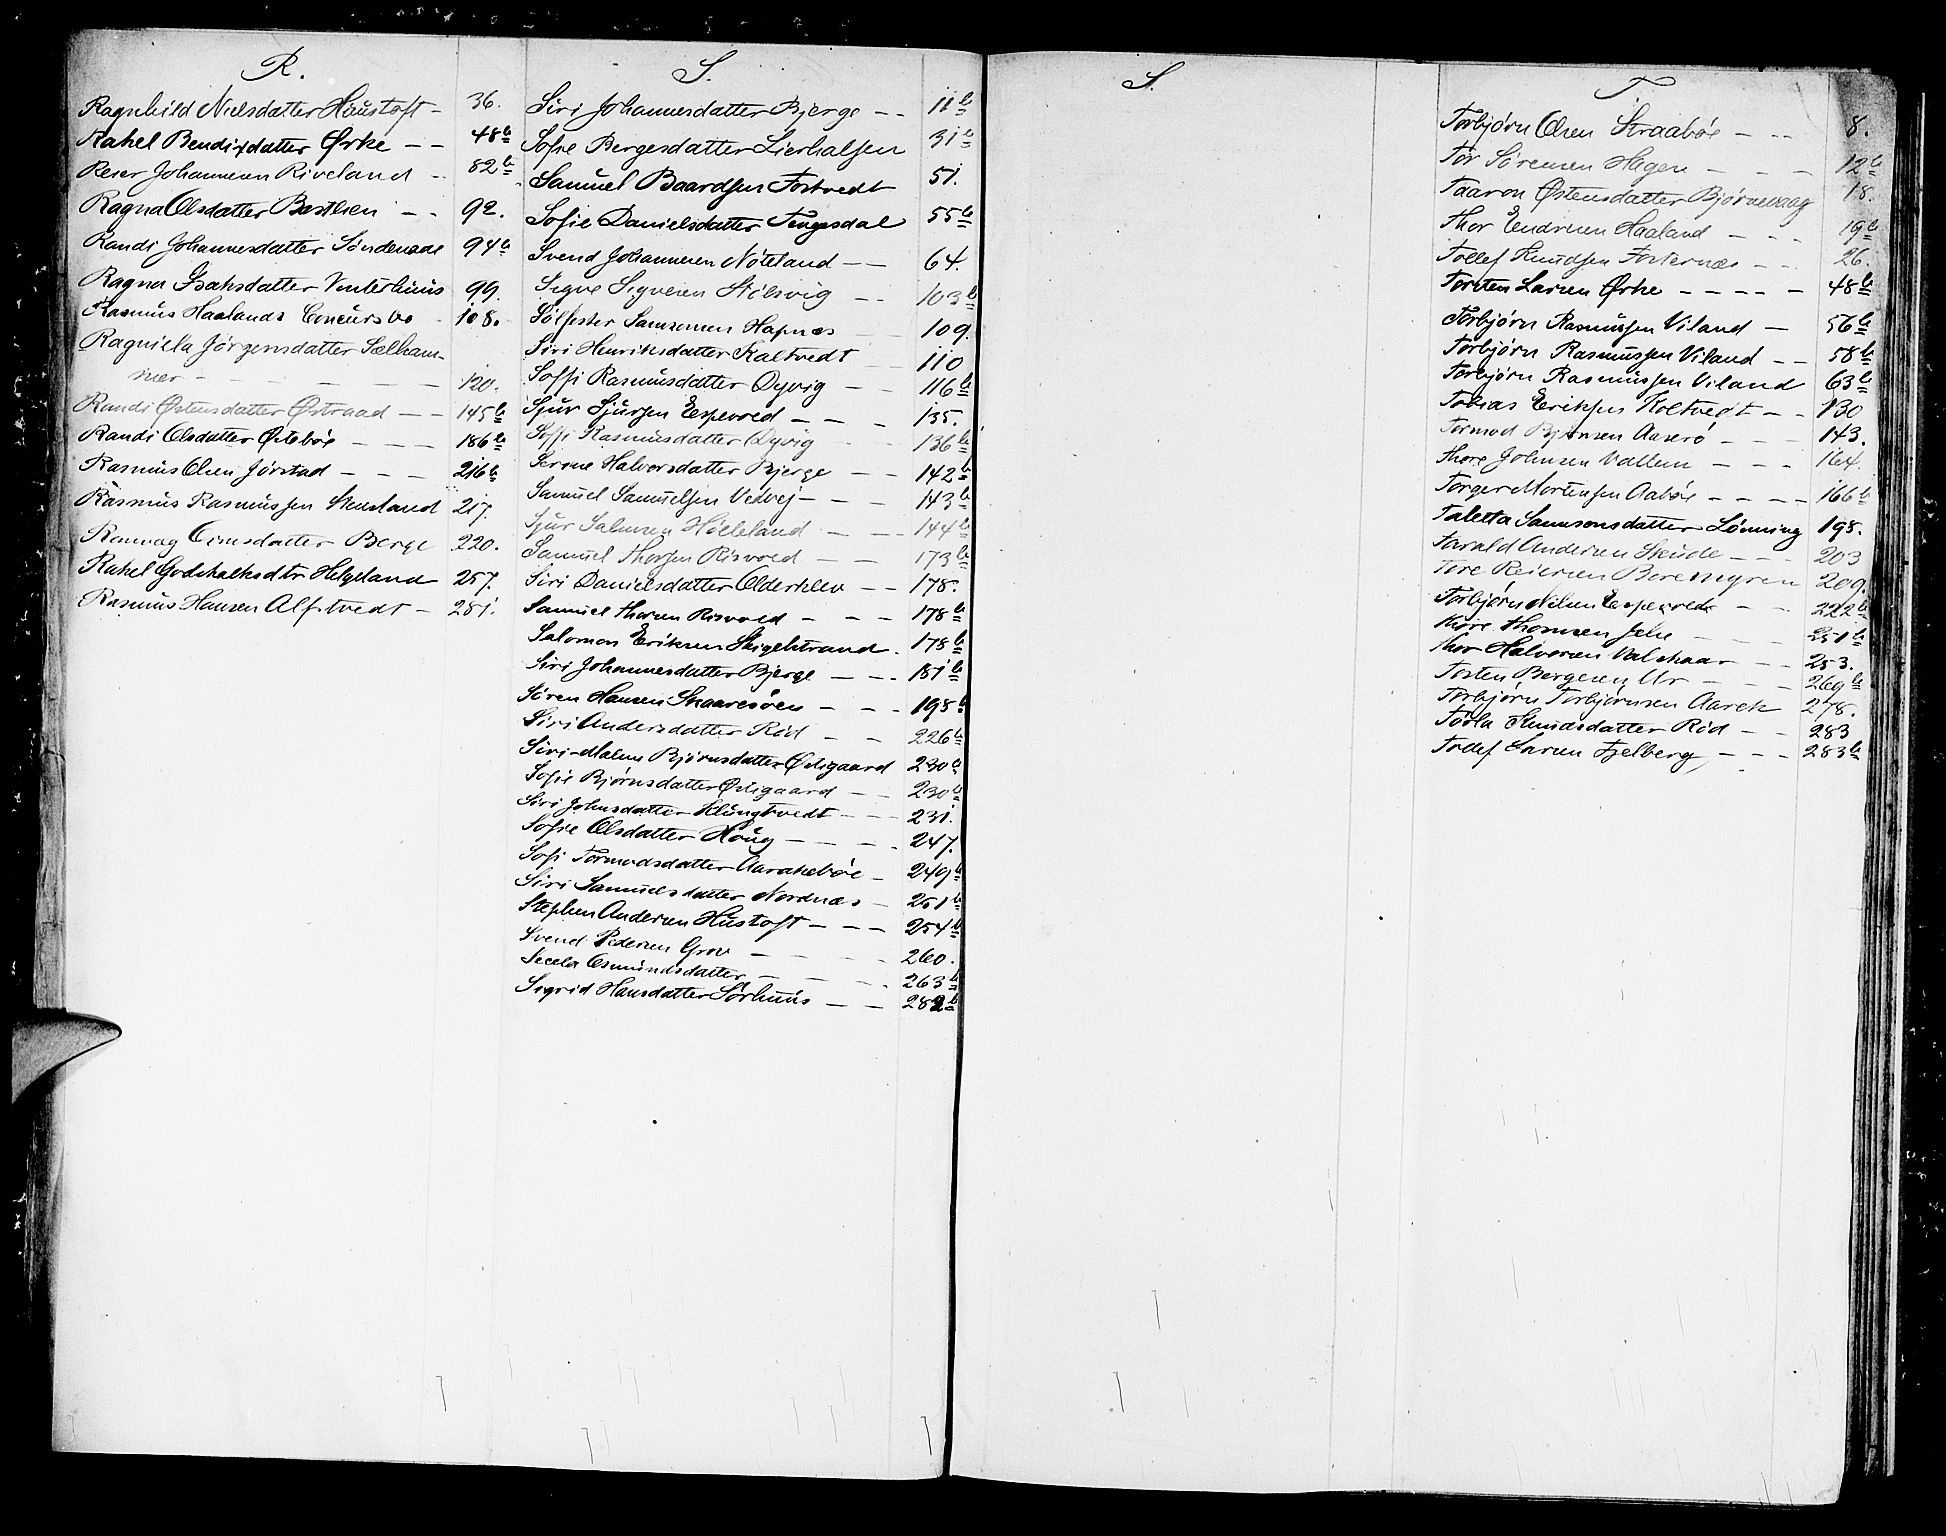 R.
Ragnhild Nielsdatter Haustoft - 36.
Rakel Bendixdatter Ørke - - 48b
Reier Johannesen Riveland - 82b
Ragna Olsdatter - - 92.
Randi Johannesdatter Søndenaae 94b
Ragna Isaksdatter Vinterhuus 99.
Rasmus Haalands Concursbo - 108.
Ragniela Jørgensdatter Sælham-
mer - - - - - - - 120.
Randi Østensdatter Østraad - - 145b
Randi Olsdatter Østebøe - - - 186b
Rasmus Olsen Jørstad - - - 216b
Rasmus Rasmussen Stensland 217.
Ronnaug Berge 220.
Rakel Godskalksdtr Helgeland 257.
Rasmus Hansen Alfstvedt - 281.
S.
Siri Johannesdatter Bjerge - - 11b
Sofie Bergesdatter Lierhalsen 31b
Samuel Baardsen Tostvedt 51.
Sofie Danielsdatter Tengesdal 55b
Svend Johannesen Nøteland - - 64.
Sigve Sigvesen Stølsvig - - 103b
Sølfester Samsonsen Hapnæs - 109.
Siri Henriksdatter Kaltvedt 110
Soffi Rasmusdatter Dyvig - - 116b
Sjur Sjursen Espevold - - - 135.
Soffi Rasmusdatter Dyvig - - 136b
Serine Halvorsdatter Bjerge - - 142b
Samuel Samuelsen Vedvej - - - 143b
Sjur Salmsen Hølleland - - - 144b
Samuel Thorsen Risvold - 173b
Siri Danielsdatter Olderklev - - 178.
Samuel Thorsen Risvold - - - 178b
Salomon Eriksen Skigelstrand. 178b
Siri Johannesdatter Bjerge - - - 181b
Søren Hansen Skaaresøen - - - 198b
Siri Andersdatter Rød - - 226b
Siri-Malene Bjørnsdatter Ødegaard 230b
Sofie Bjørnsdatter Ødegaard - - 230b
Siri Johnsdatter Klungtvedt - - - 231.
Sofie Olsdatter Houg - - - - 247.
Sofi Tormodsdatter Aarakebøe - 249b
Siri Samuelsdatter Nordnæs - 251b
Stephen Andersen Hustoft - - - 254b
Svend Pedersen Grov - - - - 260.
Secela Osmundsdatter - - - - 263b
Sigrid Hansdatter Sørhuus - - 282b
S.
T
Torbjørn Olsen Straabøe - - - 8.
Tor Sørensen Hagen - - - 12b
Taaron Østensdatter Bjørnevaag 18.
Thor Endresen Haaland - - - 19b
Tollef Knudsen Fosternæs - - 26.
Torsten Larsen Ørke - - - - - 48b
Torbjørn Rasmussen Viland - 56b
Torbjørn Rasmussen Viland - - 58b
Torbjørn Rasmussen Viland 63b
Tobias Eriksen Koltvedt - - 130
Tormod Bjørnsen Aaserø - - - 143.
Thore Johnsen Vallem - - - 164.
Torger Mortensen Aabøe - - - - 166b
Taletta Samsonsdatter Lønning 198.
Tarald Andersen Skeide - - 203
Tore Reiersen Borremyren 209.
Torbjørn Nilsen Espevold - - 222b
Thore Thomsen - - - 251b
Thor Halvorsen Valskaar - - 253.
Torsten Bergesen Ur - - - 269b
Torbjørn Torbjørnsen Aarek 278.
Torla Knudsdatter Rød - - 283
Tollef Larsen Fjelberg, - - - 283b